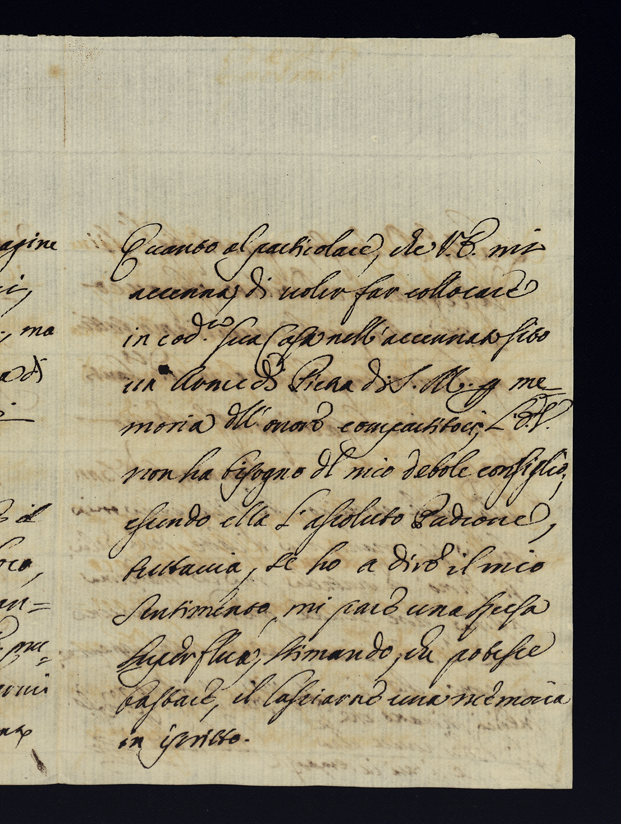 agine
ma
di
il
Quanto al particolare, che V.E. mi
accenna, di voler far collocare
in cod.ta sua Casa nell'accennato sito
un Arme di Pietra di S. M. p me=
moria dell'onore compartitoci, L'E.V.
non ha bisogno del mio debole consiglio,
essendo ella l'assoluto Padrone,
tuttavia, se ho a dire il mio
sentimento, mi pare una spesa
superflua, stimando, che potesse
bastare, il lasciarne una memoria
in iscritto.